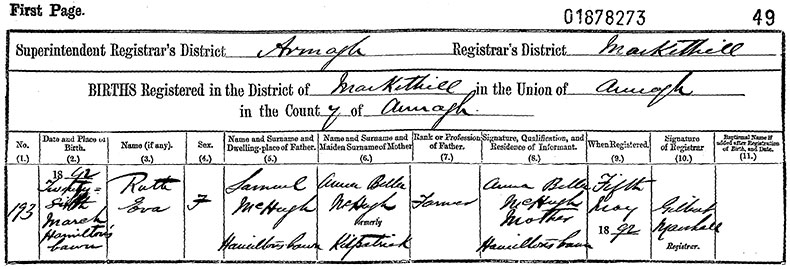 First Page.
01878273
49
Superintendent Registrar's District Armagh Registrar's District Markethill
BIRTHS Registered in the District of Markethill in the Union of Armagh
in the County of Armagh.
No. (1.)
Date and Place of Birth. (2.)
Name (if any). (3.)
Sex. (4.)
Name and Surname and Dwelling-place of Father. (5.)
Name and Surname and Maiden Surname of Mother (6.)
Rank or Profession of Father. (7.)
Signature, Qualification, and Residence of Informant. (8.)
When Registered. (9.)
Signature of Registrar (10.)
Baptismal Name if added after Registration of Birth, and Date. (11.)
193
1892
Twenty-
Sixth
March
Hamilton's
bawn
Ruth
Eva
F
Samuel
McHugh
Hamiltonsbawn
Anna Bella
McHugh
formerly
Kilpatrick
Farmer
Anna Bella
McHugh
Mother
Hamiltonsbawn
Fifth
May
1892
Gilbert
Marshall
Registrar.